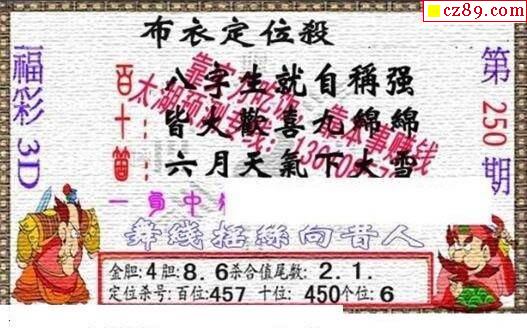 cz89.com
布衣定位殺
福彩3D
第250期
百: 八字生就自稱强
十: 皆大歡喜九綿綿
個: 六月天氣下大雪
舞线摇絲向昔人
金胆:4胆:8.6杀合值尾数:2.1.
定位杀号:百位:457 十位:450个位:6